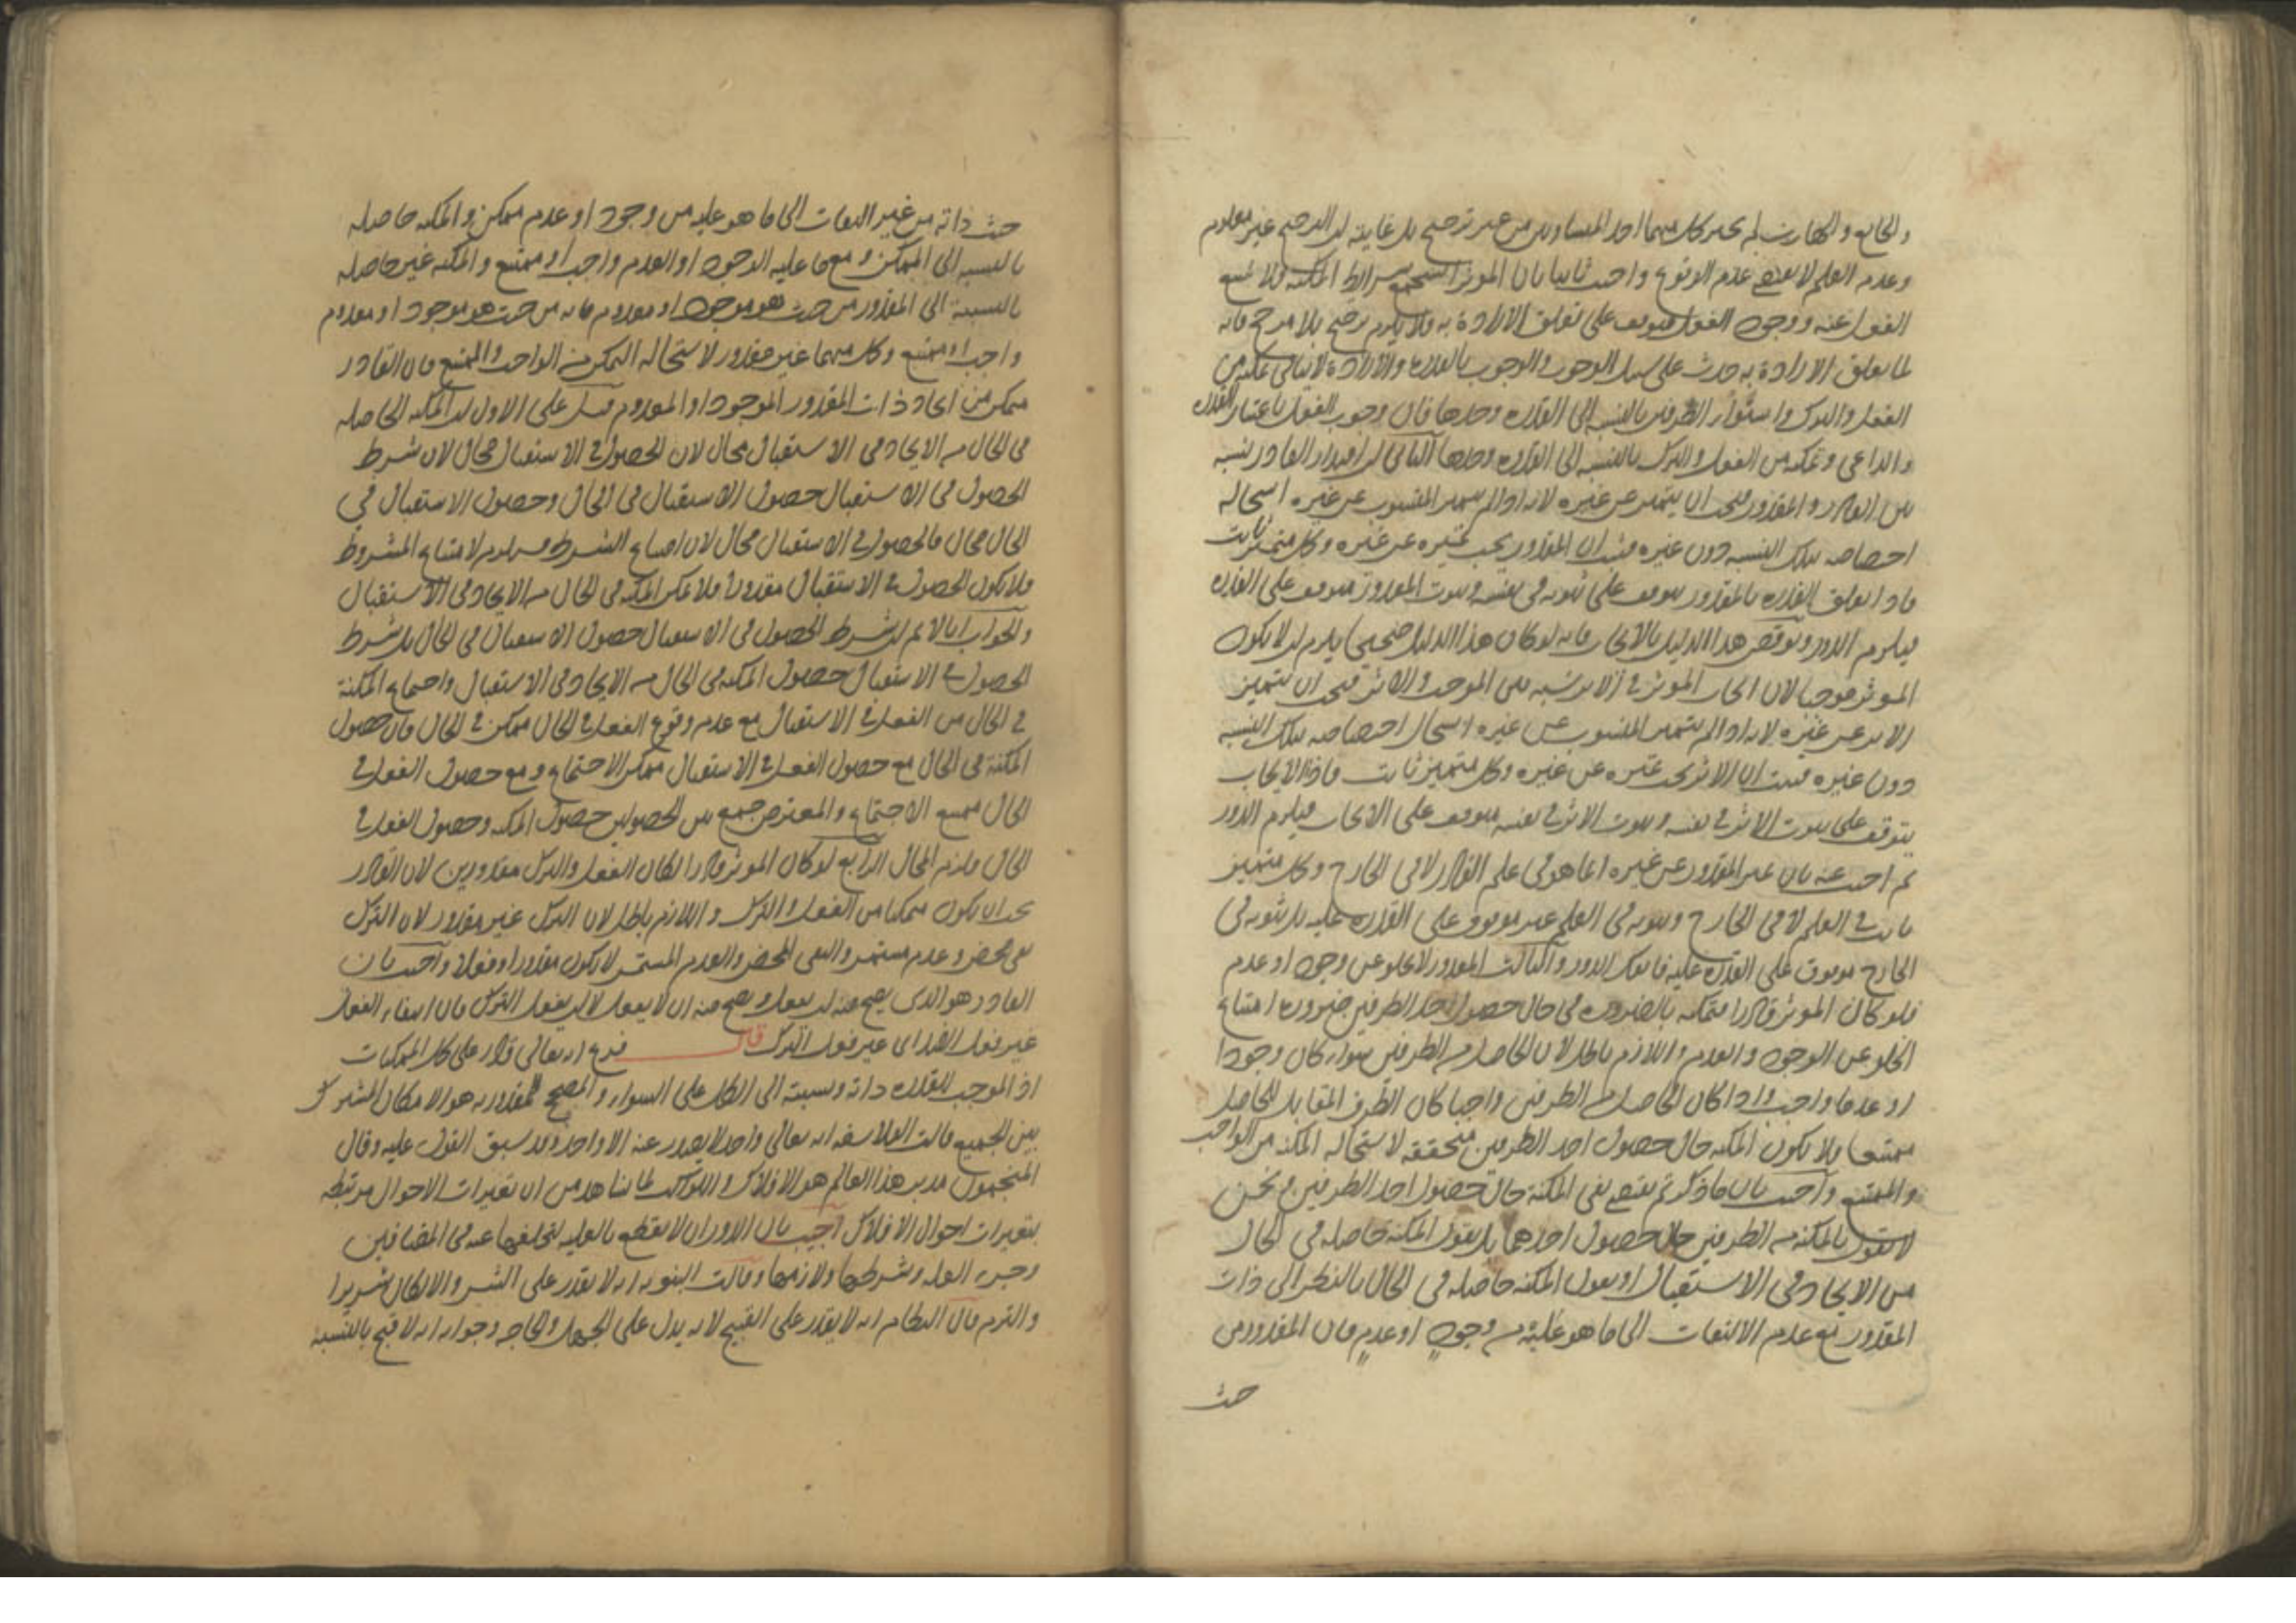 والجائع والهارب لم يختر كل منهما احد المتساويين من غير ترجيح بل غايته ان الترجيح غير معلوم
وعدم العلم لا يقتضي عدم الوقوع واجيب ثانيا بان الموثر استجمع شرائط المكنة ولا يمتنع
الفعل عنه ووجود الفعل متوقف على تعلق الارادة به ولا يلزم ترجيح بلا مرجح فانه
لما تعلق الارادة به حدث على سبيل الوجوب والوجوب بالقدرة والارادة لا ينافي تمكنه من
الفعل والترك واستواء الطرفين بالنسبة الى القدرة وحدها فان وجوب الفعل باعتبار القدرة
والداعي وتمكنه من الفعل والترك بالنسبة الى القدرة وحدها الثاني ان اقتدار القادر نسبة
بين القادر والمقدور فيجب ان يتميز عن غيره لانه لو لم يتميز المنسوب عن غيره استحال
اختصاصه بتلك النسبة دون غيره فثبت ان المقدور يجب تميزه عن غيره وكل متميز ثابت
فاذا تعلق القدرة بالمقدور يتوقف على ثبوته في نفسه وثبوت المقدور متوقف على القدرة
فيلزم الدور ونوقض هذا الدليل بالايجاب فانه لو كان هذا الدليل صحيحا يلزم ان لا يكون
الموثر موجبا لان ايجاب الموثر في الاثر نسبة بين الموجب والاثر فيجب ان يتميز
الاثر عن غيره لانه لو لم يتميز المنسوب عن غيره استحال اختصاصه بتلك النسبة
دون غيره فثبت ان الاثر يجب تميزه عن غيره وكل متميز ثابت فاذا الايجاب
يتوقف على ثبوت الاثر في نفسه وثبوت الاثر في نفسه يتوقف على الايجاب فيلزم الدور
ثم اجيب عنه بان تميز المقدور عن غيره انما هو في علم القادر لا في الخارج وكل متميز
ثابت في العلم لا في الخارج وثبوته في العلم غير موقوف على القدرة عليه بل ثبوته في
الخارج موقوف على القدرة عليه فانفك الدور والثالث المقدور لا يخلو عن وجود او عدم
فلو كان الموثر قادرا متمكنه بالضرورة في حال حصول احد الطرفين ضرورة امتناع
الخلو عن الوجود والعدم واللازم باطل لان الحاصل من الطرفين سواء كان وجودا
او عدما واجب واذا كان الحاصل من الطرفين واجبا كان الطرف المقابل للحاصل
ممتنعا فلا يكون المكنة حال حصول احد الطرفين متحققة لاستحالة المكنة من الواجب
والممتنع واجيب بان ما ذكرتم يقتضي نفي المكنة حال حصول احد الطرفين ونحن
لا نقول بالمكنة من الطرفين حال حصول احدهما بل نقول المكنة حاصله في الحال
من الايجاد في الاستقبال او نقول المكنة حاصله في الحال بالنظر الى ذات
المقدور مع عدم الالتفات الى ما هو عليه من وجود او عدم فان المقدور من
حيث
حيث ذاته من غير التفات الى ما هو عليه من وجود او عدم ممكن والمكنة حاصله
بالنسبة الى الممكن ومع ما عليه الوجود او العدم واجب او ممتنع والمكنة غير حاصله
بالنسبة الى المقدور من حيث هو موجود او معدوم فانه من حيث هو موجود او معدوم
واجب او ممتنع وكل منهما غير مقدور لاستحالة التمكن من الواجب والممتنع فان القادر
متمكن من ايجاد ذات المقدور الموجود او المعدوم قيل على الاول ان المكنة الحاصله
في الحال من الايجاد في الاستقبال محال لان الحصول في الاستقبال محال لان شرط
الحصول في الاستقبال حصول الاستقبال في الحال وحصول الاستقبال في
الحال محال فالحصول في الاستقبال محال لان امتناع الشرط مستلزم لامتناع المشروط
فلا يكون الحصول في الاستقبال مقدورا فلا تمكن المكنة في الحال من الايجاد في الاستقبال
والجواب انا لا نم ان شرط الحصول في الاستقبال حصول الاستقبال في الحال بل شرط
الحصول في الاستقبال حصول المكنة في الحال من الايجاد في الاستقبال واجتماع المكنة
في الحال من الفعل في الاستقبال مع عدم وقوع الفعل في الحال ممكن في الحال فان حصول
المكنة في الحال مع حصول الفعل في الاستقبال ممكن الاجتماع ومع حصول الفعل في
الحال ممتنع الاجتماع والمعترض جمع بين الحصولين حصول المكنة وحصول الفعل في
الحال فلزم المحال الرابع لو كان الموثر قادرا لكان الفعل والترك مقدورين لان القادر
يجب ان يكون متمكنا من الفعل والترك واللازم باطل لان الترك غير مقدور لان الترك
نفي محض وعدم مستمر والنفي المحض والعدم المستمر لا يكون مقدورا وفعلا واجيب بان
القادر هو الذي يصح منه ان يفعل ويصح منه ان لا يفعل لا ان يفعل الترك فان انتفاء الفعل
غير فعل الضد اي غير فعل الترك قال فرع انه تعالى قادر على كل الممكنات
اذ الموجب للقدرة ذاته ونسبته الى الكل على السواء والمصحح للمقدورية هو الامكان المشترك
بين الجميع قالت الفلاسفة انه تعالى واحد لا يصدر عنه الا واحد وقد سبق القول عليه وقال
المنجمون مدبر هذا العالم هو الافلاك والكواكب لما نشاهد من ان تغيرات الاحوال مرتبطه
بتغيرات احوال الافلاك اجيب بان الدوران لا يقطع بالعلية لتخلفها عنه في المضافين
وجزء العلة وشرطها ولازمها وقالت الثنوية انه لا يقدر على الشر والا لكان شريرا
والتزم قال النظام انه لا يقدر على القبيح لانه يدل على الجهل والحاجة وجوابه انه لا قبح بالنسبة